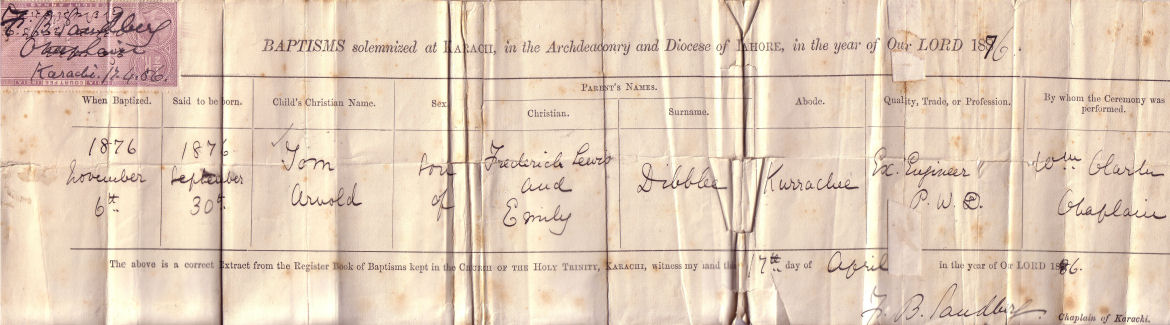 Chaplain
Karachi. 17.4.86.
BAPTISMS solemnized at KARACHI, in the Archdeaconry and Diocese of LAHORE, in the year of Our LORD 1876.
When Baptized. Said to be born. Child's Christian Name. Sex PARENT'S NAMES. Abode. Quality, Trade, or Profession. By whom the Ceremony was performed.
Christian. Surname.
1876 1876 Tom son Frederick Lewis Ex. Engineer Wm
November September of and Dibblee Kurrachee P. W. D. Chaplain
6th 30th Arnold Emily
The above is a correct Extract from the Register Book of Baptisms kept in the CHURCH OF THE HOLY TRINITY, KARACHI, witness my hand the 17th day of April in the year of Our LORD 1886.
F. B.
Chaplain of Karachi.